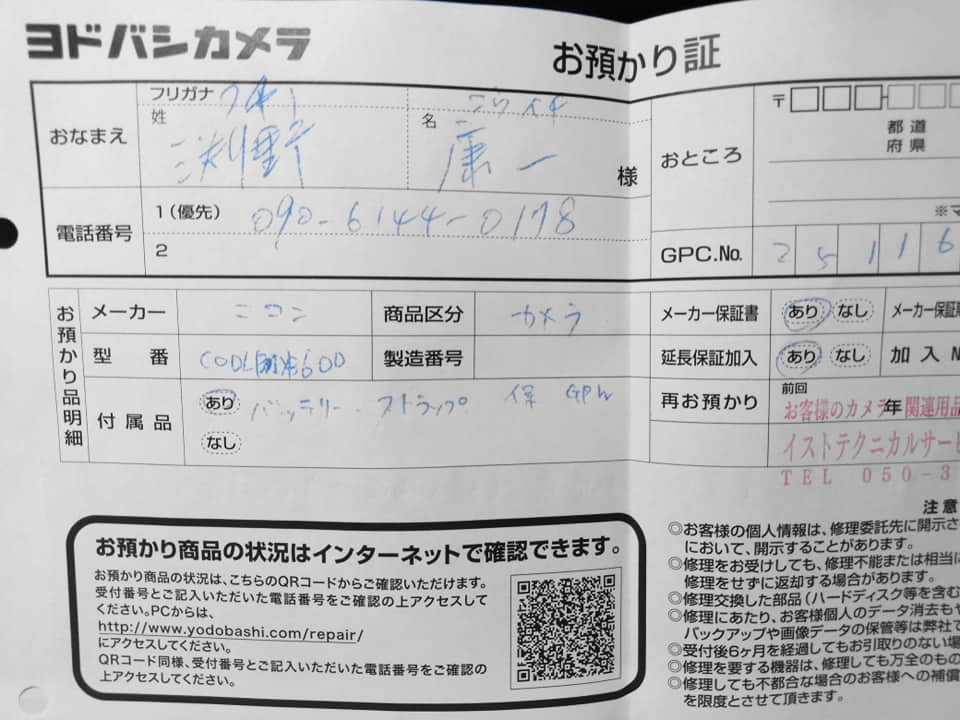 ヨドバシカメラ
お預かり証
おなまえ
フリガナ
姓
渕野
名 コウイチ
康一
様
おところ
〒
都道
府県
電話番号
1(優先) 090-6144-0178
2
GPC.No. 25116
お預かり品明細
メーカー ニコン
商品区分 カメラ
メーカー保証書 あり なし
型番
製造番号
延長保証加入 あり なし 加入N
付属品 あり バッテリー ストラップ 保
なし
再お預かり
前回
年
お客様のカメラ 関連用品
イストテクニカルサービ
TEL 050-3
お預かり商品の状況はインターネットで確認できます。
お預かり商品の状況は、こちらのQRコードからご確認いただけます。
受付番号とご記入いただいた電話番号をご確認の上アクセスして
ください。PCからは、
http://www.yodobashi.com/repair/
にアクセスしてください。
QRコード同様、受付番号とご記入いただいた電話番号をご確認の
上アクセスしてください。
注意
◎お客様の個人情報は、修理委託先に開示さ
において、開示することがあります。
◎修理をお受けしても、修理不能または相当に
修理をせずに返却する場合があります。
◎修理交換した部品(ハードディスク等を含む
◎修理にあたり、お客様個人のデータ消去もや
バックアップや画像データの保管等は弊社で
◎受付後6ヶ月を経過してもお引取りのない場
◎修理を要する機器は、修理しても万全のもの
◎修理しても不都合な場合のお客様への補償
を限度とさせて頂きます。